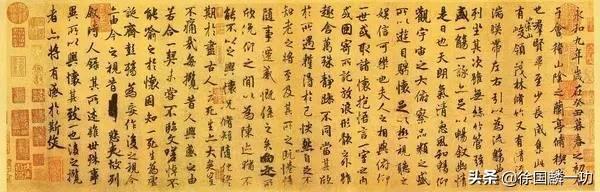 永和九年歲在癸丑暮春之初會
于會稽山陰之蘭亭脩稧事
也羣賢畢至少長咸集此地
有崇山峻領茂林脩竹又有清流激
湍暎帶左右引以為流觴曲水
列坐其次雖無絲竹管弦之
盛一觴一詠亦足以暢敘幽情
是日也天朗氣清惠風和暢仰
觀宇宙之大俯察品類之盛
所以遊目騁懷足以極視聽之
娛信可樂也夫人之相與俯仰
一世或取諸懷抱悟言一室之內
或因寄所託放浪形骸之外雖
趣舍萬殊靜躁不同當其欣
於所遇暫得於己怏然自足不
知老之將至及其所之既惓情
隨事遷感慨係之矣向之所
欣俛仰之閒以為陳迹猶不
能不以之興懷況脩短隨化終
期於盡古人云死生亦大矣豈
不痛哉每攬昔人興感之由
若合一契未嘗不臨文嗟悼不
能喻之於懷固知一死生為虛
誕齊彭殤為妄作後之視今
亦由今之視昔悲夫故列
敘時人錄其所述雖世殊事
異所以興懷其致一也後之攬
者亦將有感於斯文
头条 @徐国麟一功